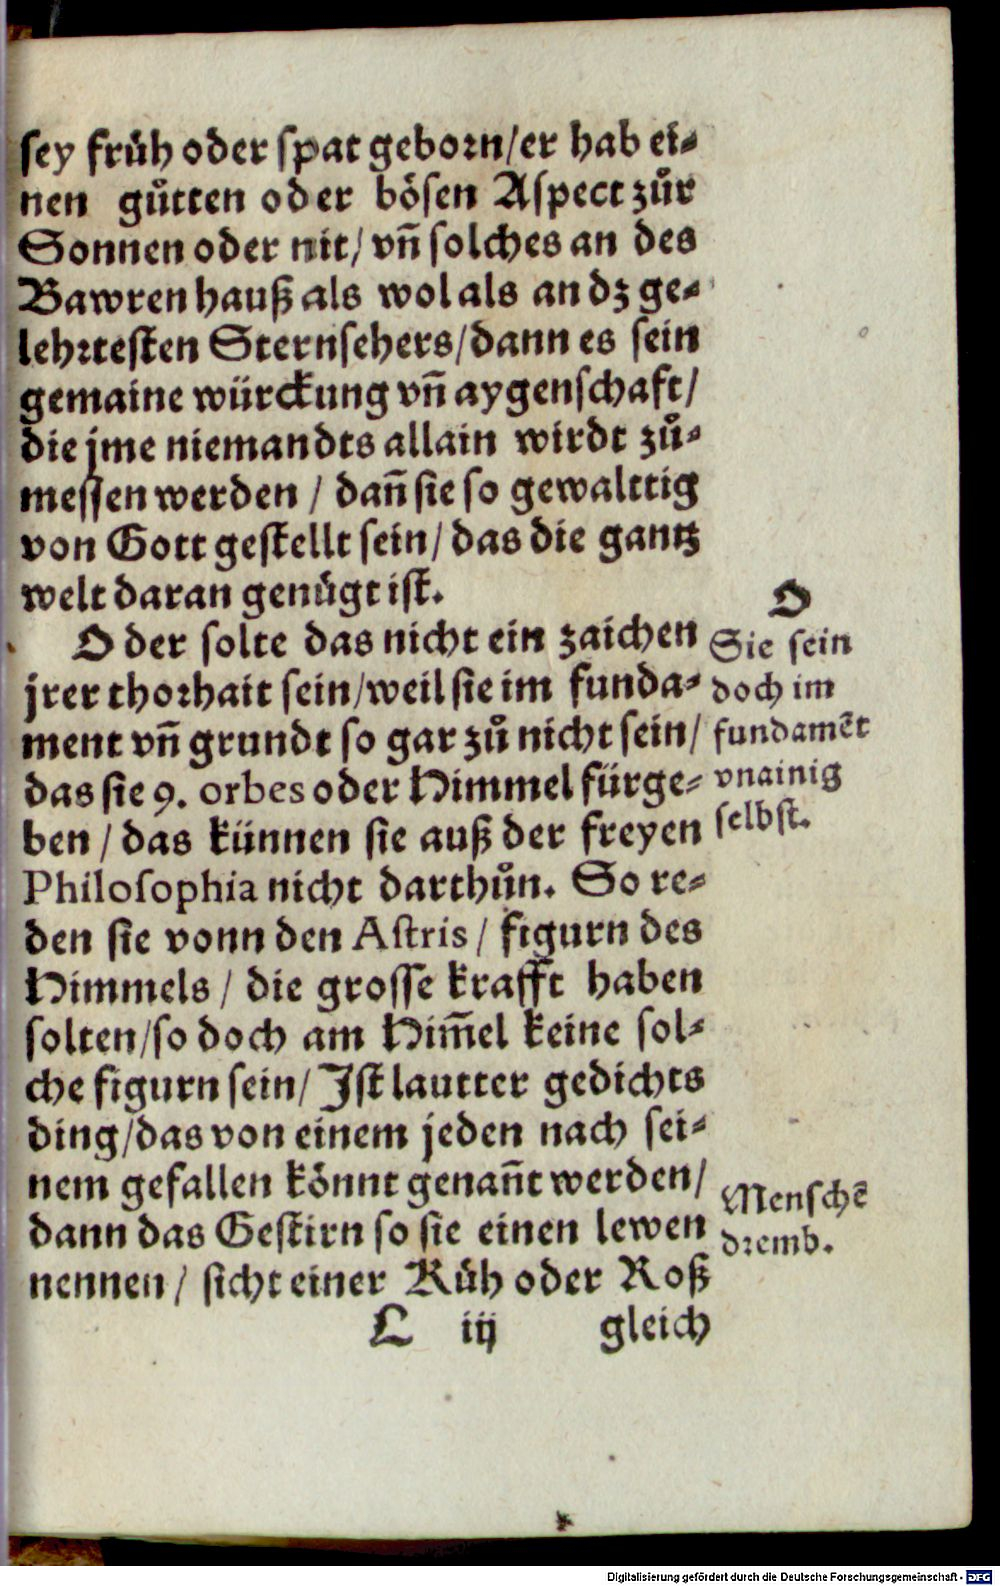 sey früh oder spat geborn/er hab ei-
nen gůtten oder bösen Aspect zůr
Sonnen oder nit/ vñ solches an des
Bawren hauß als wol als an dz ge-
lehrtesten Sternsehers/dann es sein
gemaine würckung vñ aygenschaft/
die jme niemandts allain wirdt zů-
messen werden / dañ sie so gewalttig
von Gott gestellt sein/ das die gantz
welt daran genügt ist.
O
Oder solte das nicht ein zaichen
jrer thorhait sein/weil sie im funda-
ment vñ grundt so gar zů nicht sein/
das sie 9. orbes oder Himmel fürge-
ben / das künnen sie auß der freyen
Philosophia nicht darthůn. So re-
den sie vonn den Astris / figurn des
Himmels / die grosse krafft haben
solten/so doch am Him̃el keine sol-
che figurn sein/ Ist lautter gedichts
ding/das von einem jeden nach sei-
nem gefallen könnt genañt werden/
dann das Gestirn so sie einen lewen
nennen / sicht einer Küh oder Roß
L iij gleich
Sie sein
doch im
fundamẽt
vnainig
selbst.
Menschẽ
dremb.
Digitalisierung gefördert durch die Deutsche Forschungsgemeinschaft - DFG